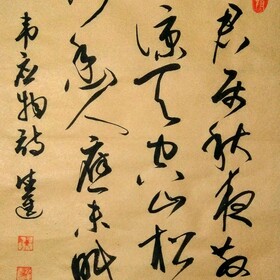 君属秋夜散
凉天空山松
幽人應未眠
韦应物诗